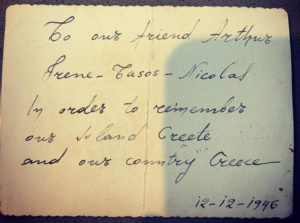 To our friend Arthur
Irene-Tasos-Nicolas
In order to remember
our Island Creete
and our country Greece
12-12-1946